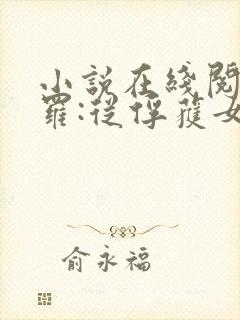 小説在綫閱
羅:從俘獲女
俞永福